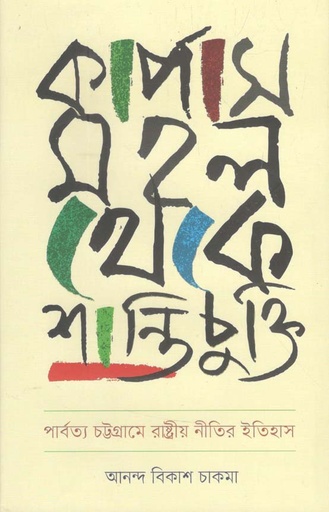 কার্পাস
মহল
থেকে
শান্তিচুক্তি
পার্বত্য চট্টগ্রামে রাষ্ট্রীয় নীতির ইতিহাস
আনন্দ বিকাশ চাকমা